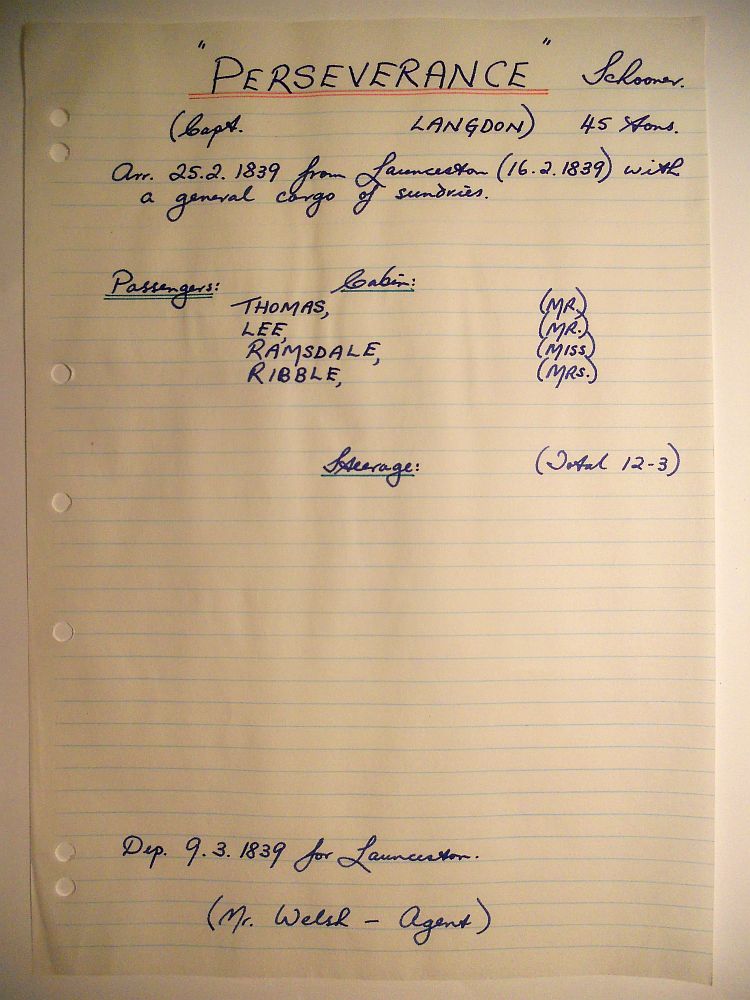 "PERSEVERANCE" Schooner.
(Capt. LANGDON) 45 Tons.
Arr. 25.2.1839 from Launceston (16.2.1839) with
a general cargo of sundries.
Passengers: Cabin:
THOMAS, (MR.)
LEE, (MR.)
RAMSDALE, (MISS)
RIBBLE, (MRS.)
Steerage: (Total 12-3)
Dep. 9.3.1839 for Launceston.
(Mr. Welsh - Agent)